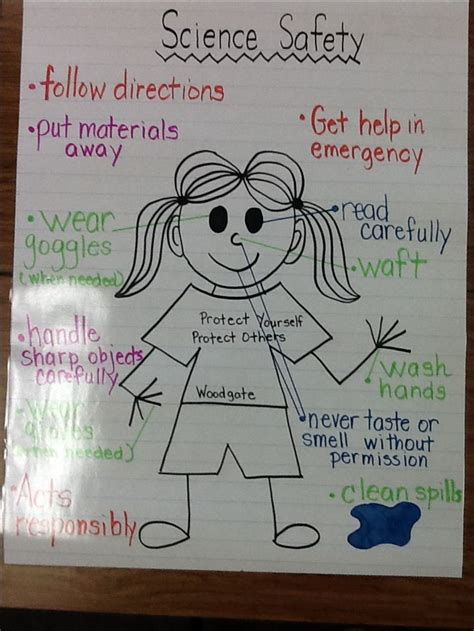 Science Safety
• follow directions
• put materials
away
• Get help in
emergency
• wear
goggles
(when needed)
• read
carefully
• waft
Protect Yourself
Protect Others
• handle
sharp objects
carefully
Woodgate
• wash
hands
• wear
gloves
(when needed)
• never taste or
smell without
permission
• Acts
responsibly
• clean spills